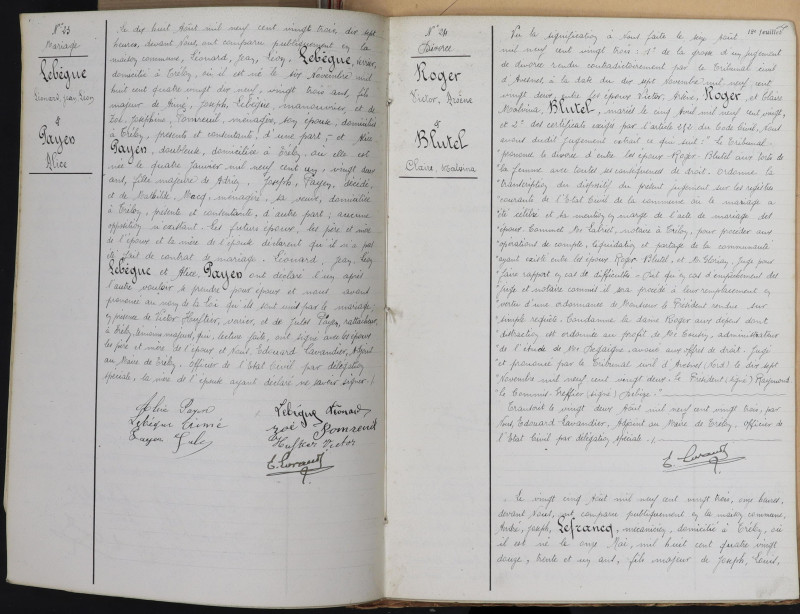 N° 23
Mariage
Lebègue
Léonard, Jean, Léon
&
Payen
Alice
Le dix huit Août mil neuf cent vingt trois, dix sept
heures, devant nous ont comparu publiquement en la
maison commune, Léonard, Jean, Léon, Lebègue,
domicilié à Trélon, où il est né le six Novembre mil
huit cent quatre vingt dix neuf, vingt trois ans, fils
majeur de Joseph, Lebègue, manouvrier, et de
Zoé, Joséphine, ménagère, son épouse, domiciliés
à Trélon, présents et consentants, d'une part; et Alice
Payen, doubleuse, domiciliée à Trélon, où elle est
née le quatre Janvier mil neuf cent un, vingt deux
ans, fille majeure de Joseph, Payen, décédé,
et de Mathilde, Macq, ménagère, sa veuve, domiciliée
à Trélon, présente et consentante, d'autre part; aucune
opposition n'existant. Les futurs époux, les père et mère
de l'époux et la mère de l'épouse déclarent qu'il n'a pas
été fait de contrat de mariage. Léonard, Jean, Léon
Lebègue et Alice Payen ont déclaré l'un après
l'autre vouloir se prendre pour époux et nous avons
prononcé au nom de la Loi qu'ils sont unis par le mariage;
en présence de Victor et de Jules Payen, rattacheur,
à Trélon, témoins majeurs, qui, lecture faite, ont signé avec les époux
les père et mère de l'époux et Nous, Edouard Lavandier, Adjoint
au Maire de Trélon, Officier de l'Etat Civil par délégation
spéciale, la mère de l'épouse ayant déclaré ne savoir signer.
Alice Payen
Lebègue Léonard
Lebègue
Zoé
Payen Jules
Victor
N° 24
Divorce
Roger
Victor, Arsène
&
Blutel
Claire, Malvina
Vu la signification à nous faite le
mil neuf cent vingt trois: 1° de la grosse d'un jugement
de divorce rendu contradictoirement par le Tribunal civil
d'Avesnes à la date du dix sept Novembre mil neuf cent
vingt deux entre les époux Victor, Arsène, Roger et Claire
Malvina, Blutel, mariés le cinq Août mil neuf cent vingt,
et 2° des certificats exigés par l'article 252 du Code Civil. Nous
avons dudit jugement extrait ce qui suit: "Le Tribunal
"prononce le divorce d'entre les époux Roger-Blutel aux torts de
"la femme avec toutes ses conséquences de droit. Ordonne la
"transcription du dispositif du présent jugement sur les registres
"courants de l'Etat Civil de la commune où le mariage a
"été célébré et sa mention en marge de l'acte de mariage des
"époux. Commet Me notaire à Trélon, pour procéder aux
"opérations de compte, liquidation et partage de la communauté
"ayant existé entre les époux Roger-Blutel, et Mr Juge pour
"faire rapport en cas de difficultés. Dit qu'en cas d'empêchement des
"juge et notaire commis il sera procédé à leur remplacement en
"vertu d'une ordonnance de Monsieur le Président rendue sur
"simple requête. Condamne la dame Roger aux dépens dont
"distraction est ordonnée au profit de Me administrateur
"de l'étude de Me avoué aux offres de droit. Jugé
"et prononcé par le Tribunal civil d'Avesnes (Nord) le dix sept
"Novembre mil neuf cent vingt deux. Le Président (signé) Raymond.
"Le Commis-Greffier (signé)
Transcrit le vingt deux Août mil neuf cent vingt trois, par
Nous, Edouard Lavandier, Adjoint au Maire de Trélon, Officier de
l'Etat Civil par délégation spéciale.
Le vingt cinq Août mil neuf cent vingt trois, onze heures,
devant Nous, ont comparu publiquement en la maison commune,
André, Joseph, Lefrancq, mécanicien, domicilié à Trélon, où
il est né le onze Mai, mil huit cent quatre vingt
douze, trente et un ans, fils majeur de Joseph, Louis,